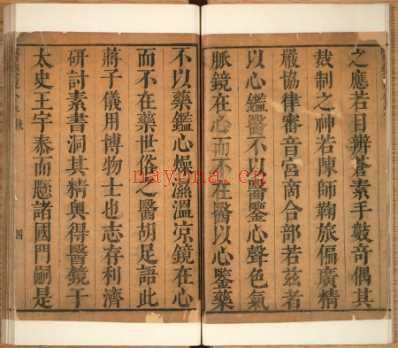 之應若目辨蒼素手數奇偶其
裁制之神若陳師鞠旅偏廣精
嚴協律審音宮商合部若茲者
以心鑑醫不以醫鑒心聲色氣
脈鏡在心而不在醫以心鑒藥
不以藥鑑心燥濕溫凉鏡在心
而不在藥世俗之醫胡足語此
蔣子儀用博物士也志存利濟
研討素書洞其精奧得醫鏡于
太史王宇泰而懸諸國門嗣是
四
nayona.cn